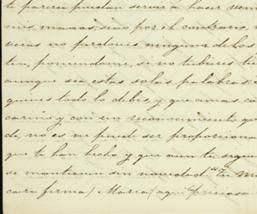 te parecía puedan servir a hacer
mis mamás, sino por el contrario,
veras no perdones ninguna de los
ten, poniendome, si no tubieres ti
aunque sea estas solas palabras:
quienes todo lo debes y que amas co
cariño y con un reconocimiento qu
de, no es ni puede ser proporciona
que te han hecho y que aun te sigue
se mantienen sin novedad. tu m
cara firma / María / aqui preciosa